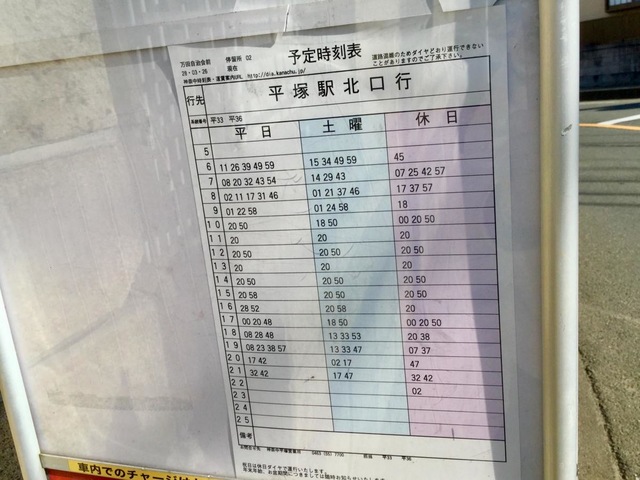 万田自治会前 停留所 02
28-03-26 現在
神奈中時刻表・運賃案内URL http://dia.kanachu.jp/
予定時刻表
道路混雑のためダイヤどおり運行できない
ことがありますのでご了承下さい。
行先 平塚駅北口行
系統番号 平33 平36
平日 土曜 休日
5
6 11 26 39 49 59 15 34 49 59 45
7 08 20 32 43 54 14 29 43 07 25 42 57
8 02 11 17 31 46 01 21 37 46 17 37 57
9 01 22 58 01 24 58 18
10 20 50 18 50 00 20 50
11 20 20 20
12 20 50 20 50 20 50
13 20 20 20
14 20 50 20 50 20 50
15 20 58 20 50 20 50
16 28 52 20 58 20
17 00 20 48 18 50 00 20 50
18 08 28 48 13 33 53 20 38
19 08 23 38 57 13 33 47 07 37
20 17 42 02 17 47
21 32 42 17 47 32 42
22 02
23
24
25
備考
祝日は休日ダイヤで運行いたします。
車内でのチャージは